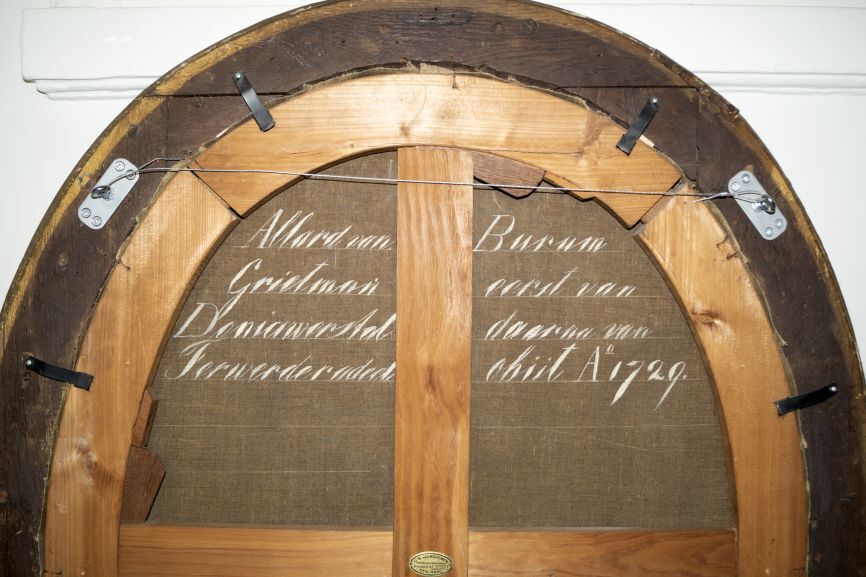 Allard van Burum
Grietman eerst van
Doniawerstal daarna van
Ferwerderadeel obiit Aº 1729.